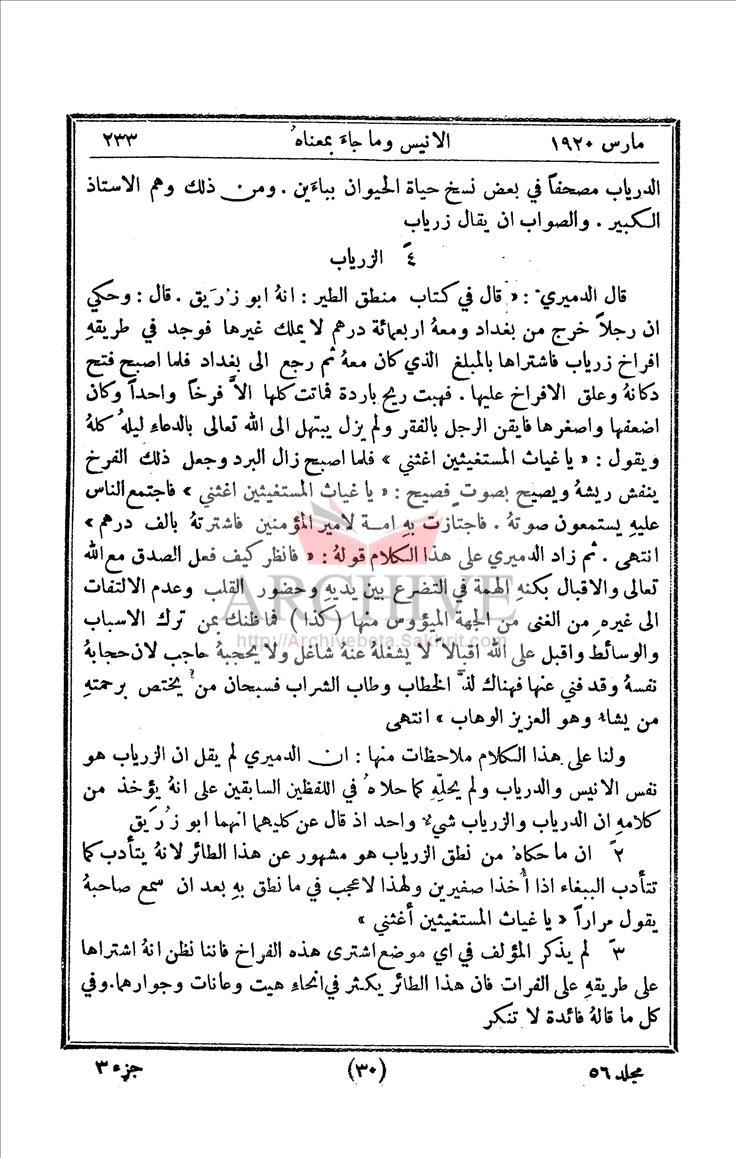 مارس ١٩٢٠ الانيس وما جاء بمعناهُ ٢٣٣
الدرياب مصحفاً في بعض نسخ حياة الحيوان بباءَين . ومن ذلك وهم الاستاذ
الكبير . والصواب ان يقال زرياب
٤ً الزرياب
قال الدميري : « قال في كتاب منطق الطير : انهُ ابو زُرَيق . قال : وحكي
ان رجلاً خرج من بغداد ومعهُ اربعمائة درهم لا يملك غيرها فوجد في طريقهِ
افراخ زرياب فاشتراها بالمبلغ الذي كان معهُ ثم رجع الى بغداد فلما اصبح فتح
دكانهُ وعلق الافراخ عليها . فهبت ريح باردة فماتت كلها الاَّ فرخاً واحداً وكان
اضعفها واصغرها فايقن الرجل بالفقر ولم يزل يبتهل الى الله تعالى بالدعاءِ ليلهُ كلهُ
ويقول : « يا غياث المستغيثين اغثني » فلما اصبح زال البرد وجعل ذلك الفرخ
ينفش ريشهُ ويصيح بصوتٍ فصيح : « يا غياث المستغيثين اغثني » فاجتمع الناس
عليهِ يستمعون صوتهُ . فاجتازت بهِ امة لامير المؤمنين فاشترتهُ بالف درهم »
انتهى . ثم زاد الدميري على هذا الكلام قولهُ : « فانظر كيف فعل الصدق مع الله
تعالى والاقبال بكنهِ الهمة في التضرع بين يديهِ وحضور القلب وعدم الالتفات
الى غيرهِ من الغنى من الجهة المبؤوس منها ( كذا ) فما ظنك بمن ترك الاسباب
والوسائط واقبل على الله اقبالاً لا يشغلهُ عنهُ شاغل ولا يحجبهُ حاجب لان حجابهُ
نفسهُ وقد فني عنها فهناك لذَّ الخطاب وطاب الشراب فسبحان من يختص برحمتهِ
من يشاء وهو العزيز الوهاب » انتهى
ولنا على هذا الكلام ملاحظات منها : ان الدميري لم يقل ان الزرياب هو
نفس الانيس والدرياب ولم يحلِّهِ كما حلاهُ في اللفظين السابقين على انهُ يؤخذ من
كلامهِ ان الدرياب والزرياب شيءٌ واحد اذ قال عن كليهما انهما ابو زُرَيق
٢ً ان ما حكاهُ من نطق الزرياب هو مشهور عن هذا الطائر لانهُ يتأدب كما
تتأدب الببغاء اذا أُخذا صفيرين ولهذا لا عجب في ما نطق بهِ بعد ان سمع صاحبهُ
يقول مراراً « يا غياث المستغيثين أغثني »
٣ً لم يذكر المؤلف في اي موضع اشترى هذه الفراخ فاننا نظن انهُ اشتراها
على طريقهِ على الفرات فان هذا الطائر يكثر في انحاءِ هيت وعانات وجوارهما. وفي
كل ما قالهُ فائدة لا تنكر
مجلد ٥٦ (٣٠) جزء ٣
ARCHIVE
http://Archivebeta.Sakhrit.com